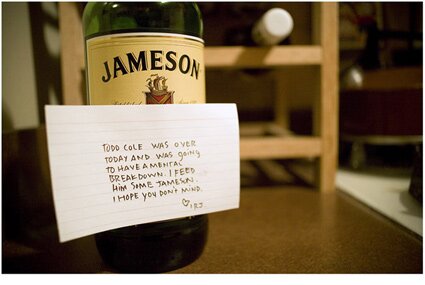 JAMESON
TODD COLE WAS OVER
TODAY AND WAS GOING
TO HAVE A MENTAL
BREAKDOWN. I FEED
HIM SOME JAMESON.
I HOPE YOU DON'T MIND.
♡ RJ